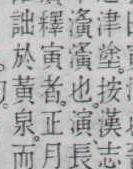 津塗。按漢志
濥也。演長
釋寅者。正月
詘於黃泉。而